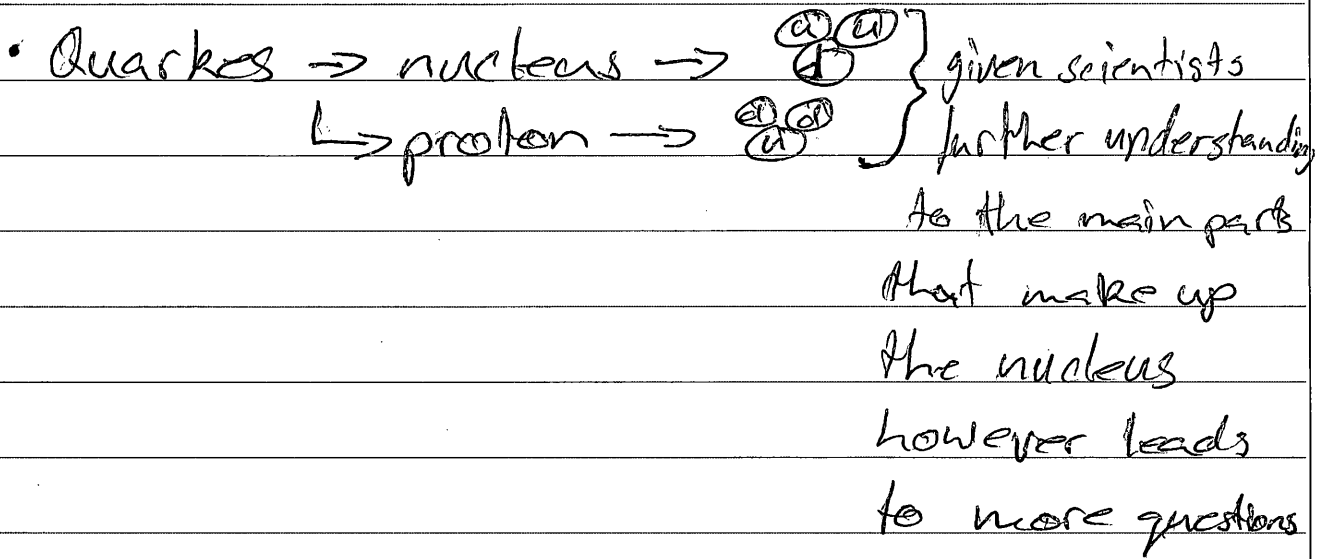 • Quarkes → nucleus → u d } given scientists
↳ proton → d d u further understanding
to the main parts
that make up
the nucleus
however leads
to more questions